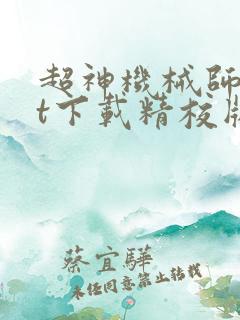 超神機械師
t下載精校版
蔡宜驊
未经同意禁止转载